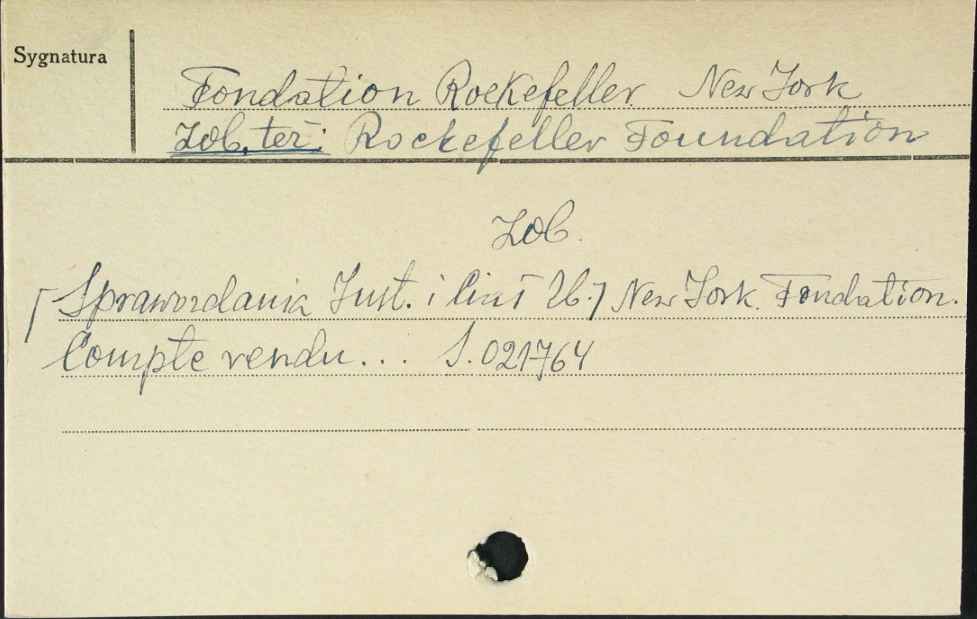 Sygnatura
Fondation Rockefeller New York
Zob. też: Rockefeller Foundation
Zob.
[Sprawozdania Inst. i Civ. U.] New York. Fondation.
Compte rendu... S. 021764